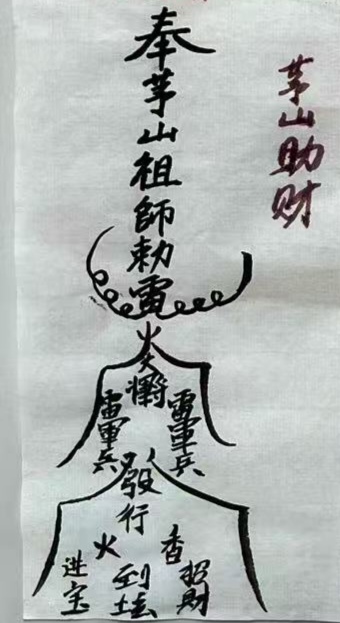 茅山助财
奉茅山祖師勅雷
火
雷軍兵
雷軍兵
發行
火
到坛
香
招財
进宝